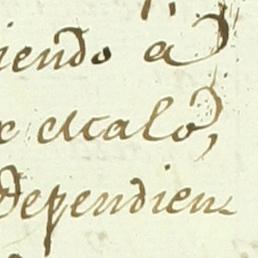 iendo à
escaló,
dependien